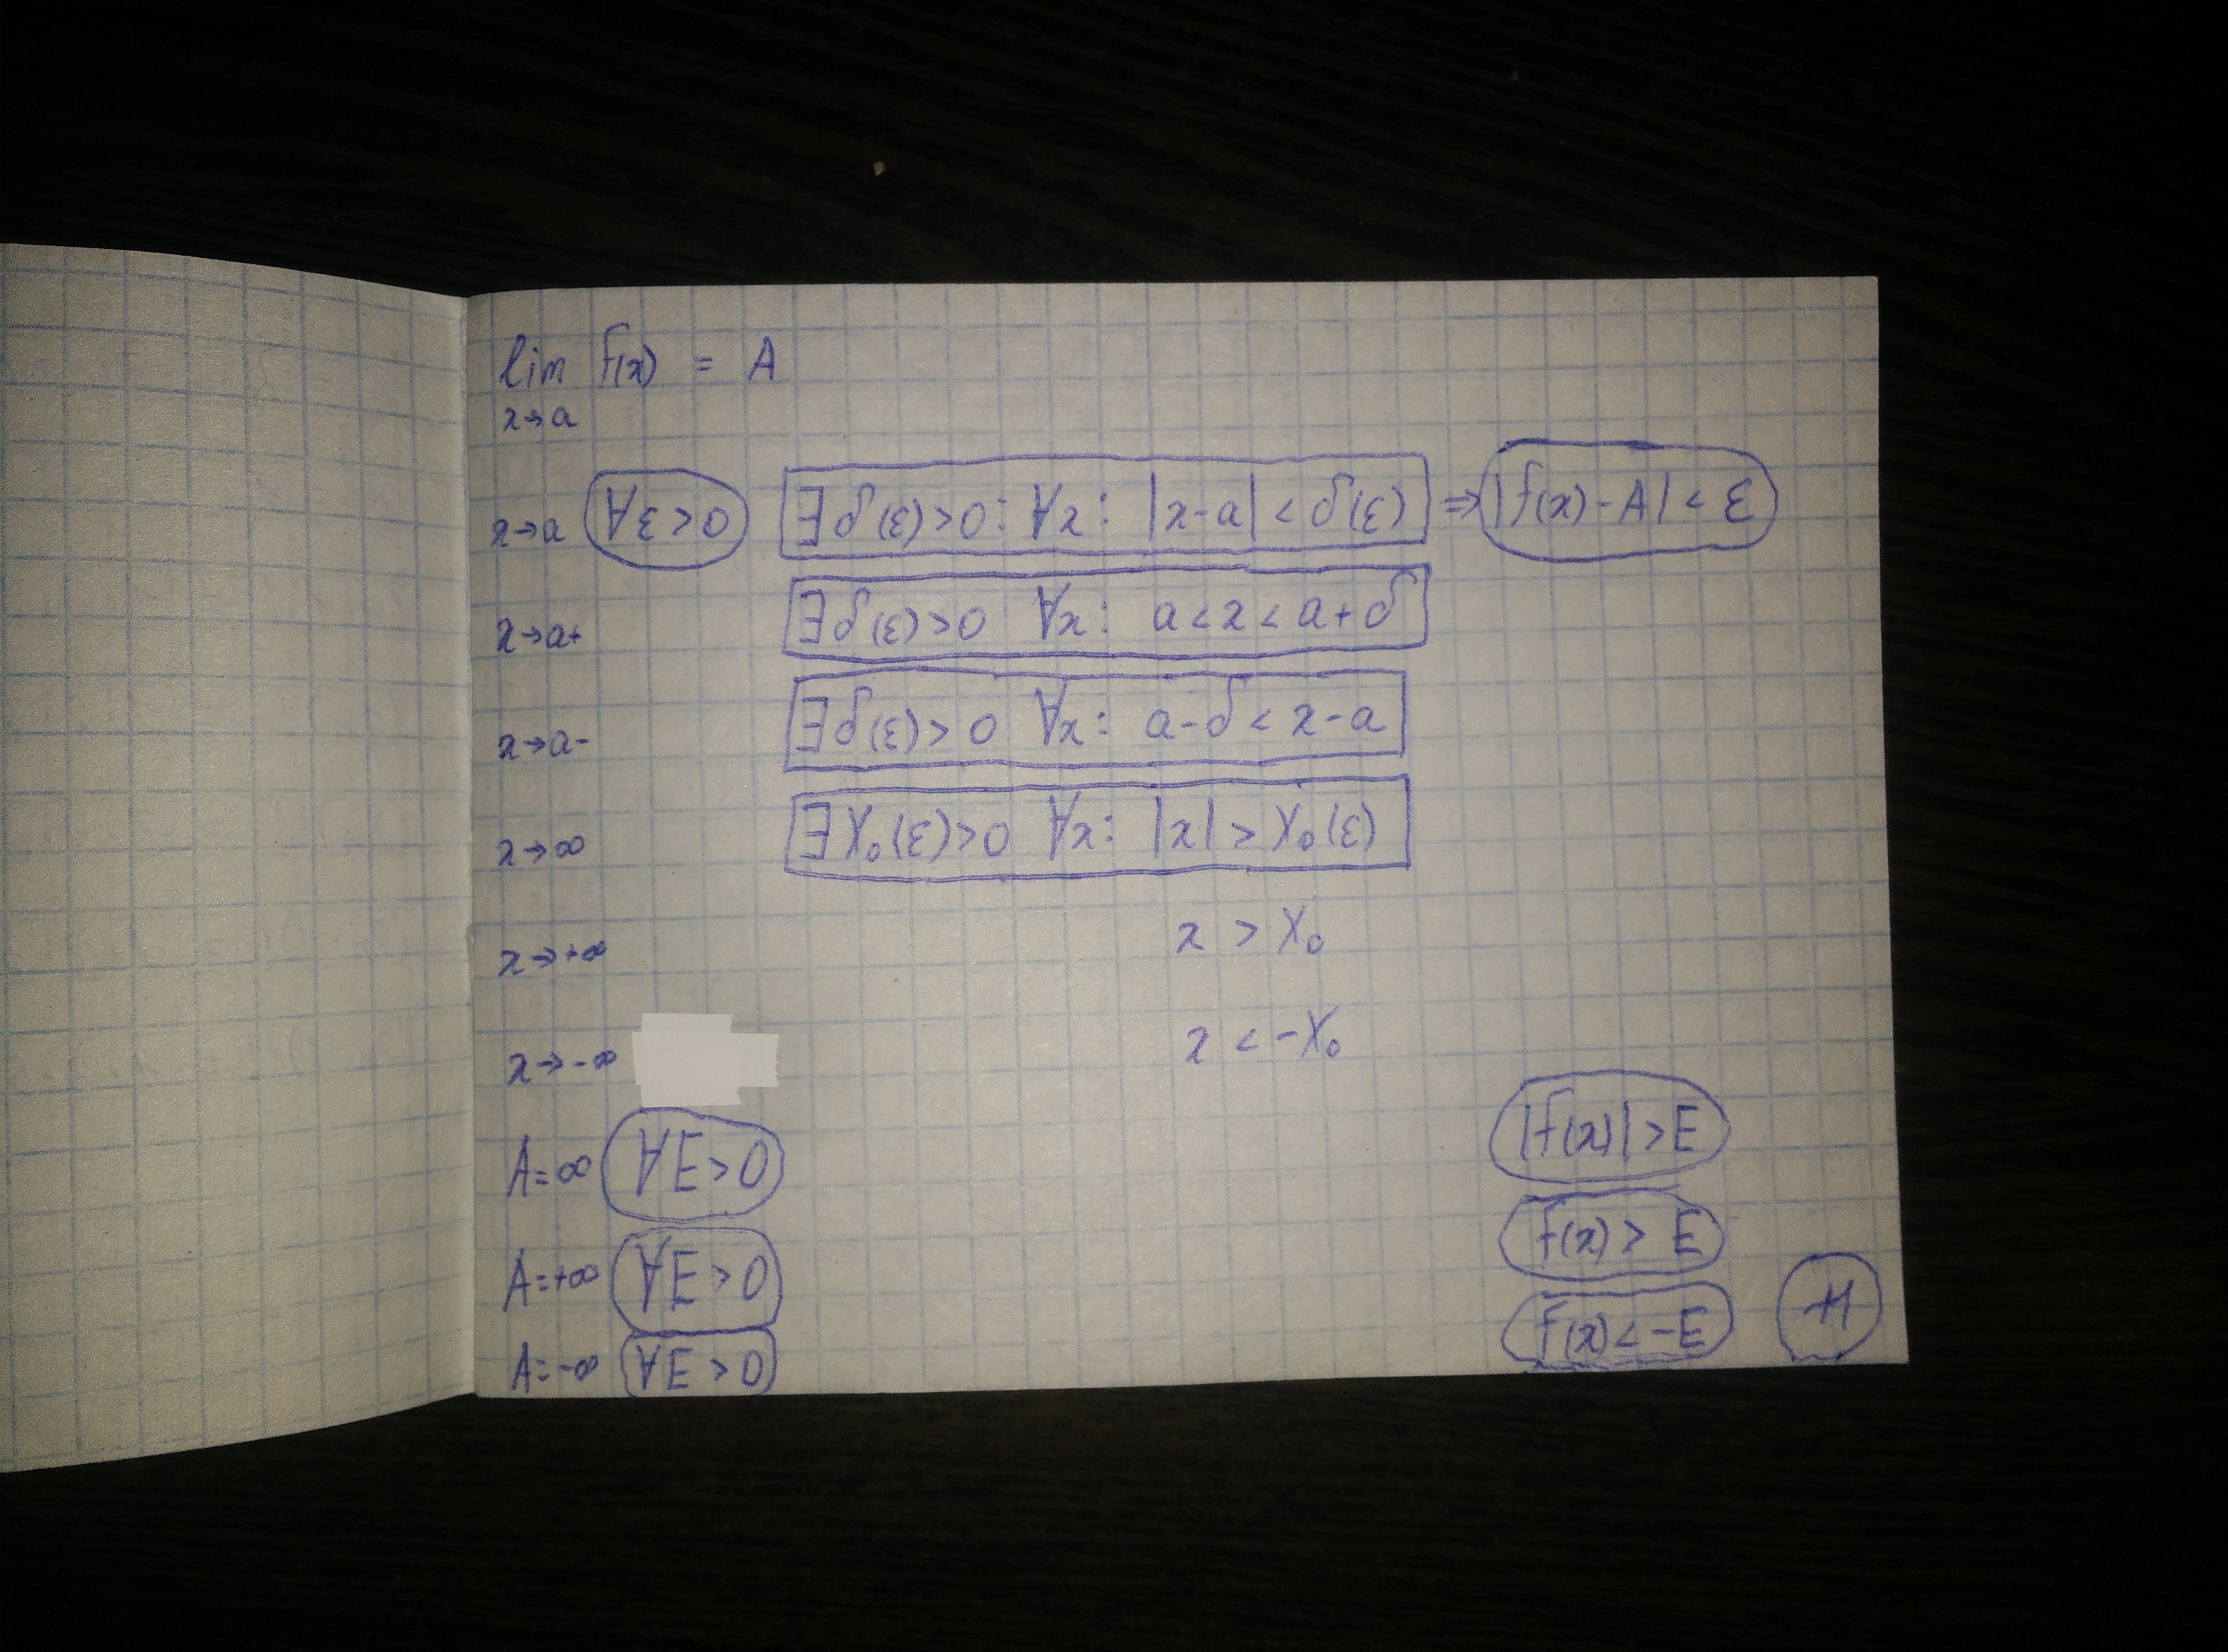 lim f(x) = A
x→a
x→a ∀ε>0 ∃δ(ε)>0: ∀x: |x-a| < δ(ε) ⇒ |f(x)-A| < ε
x→a+ ∃δ(ε)>0 ∀x: a<x<a+δ
x→a- ∃δ(ε)>0 ∀x: a-δ<x-a
x→∞ ∃X₀(ε)>0 ∀x: |x| > X₀(ε)
x→+∞ x > X₀
x→-∞ x < -X₀
A=∞ ∀E>0 |f(x)|>E
A=+∞ ∀E>0 f(x) > E
A=-∞ ∀E>0 f(x)<-E